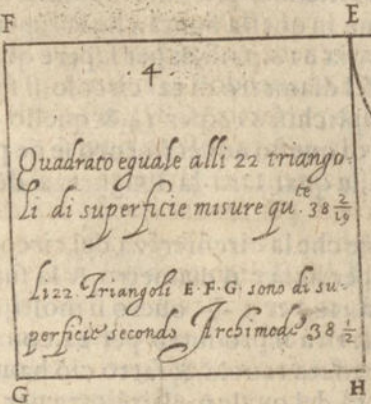 F E
·4·
Quadrato eguale alli 22 triango-
li di superficie misure qu.te 38 2/19
li 22. Triangoli E·F·G· sono di su-
perficie secondo Archimede 38 1/2
G H